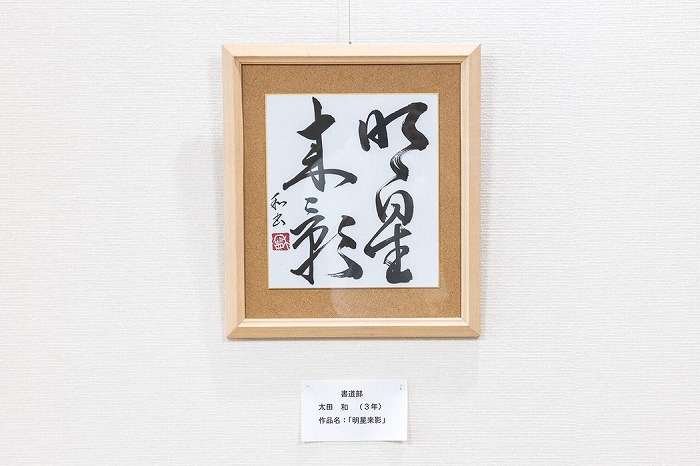 明星
来影
和書
書道部
太田　和　（３年）
作品名：「明星来影」